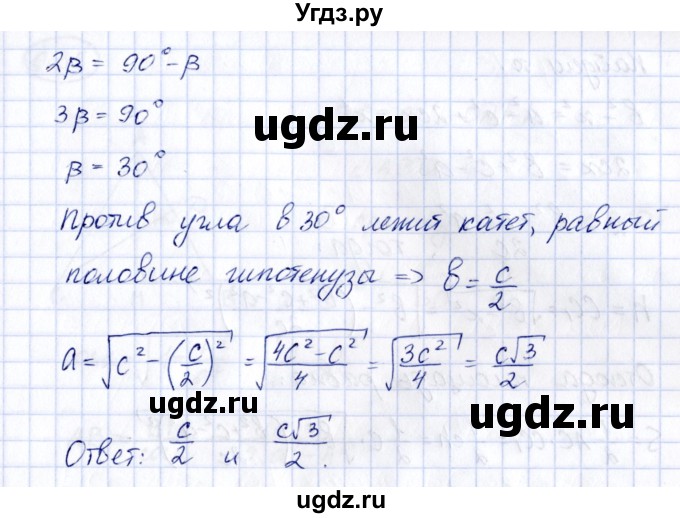 Угдз.ру
2β = 90° - β
3β = 90°
ugdz.ru
β = 30°
против угла в 30° лежит катет, равный
половине гипотенузы => b = c/2
ugdz.ru
a = √(c² - (c/2)²) = √((4c² - c²)/4) = √(3c²/4) = c√3/2
ugdz.ru
Ответ: c/2 и c√3/2.
ugdz.ru
ugdz.ru